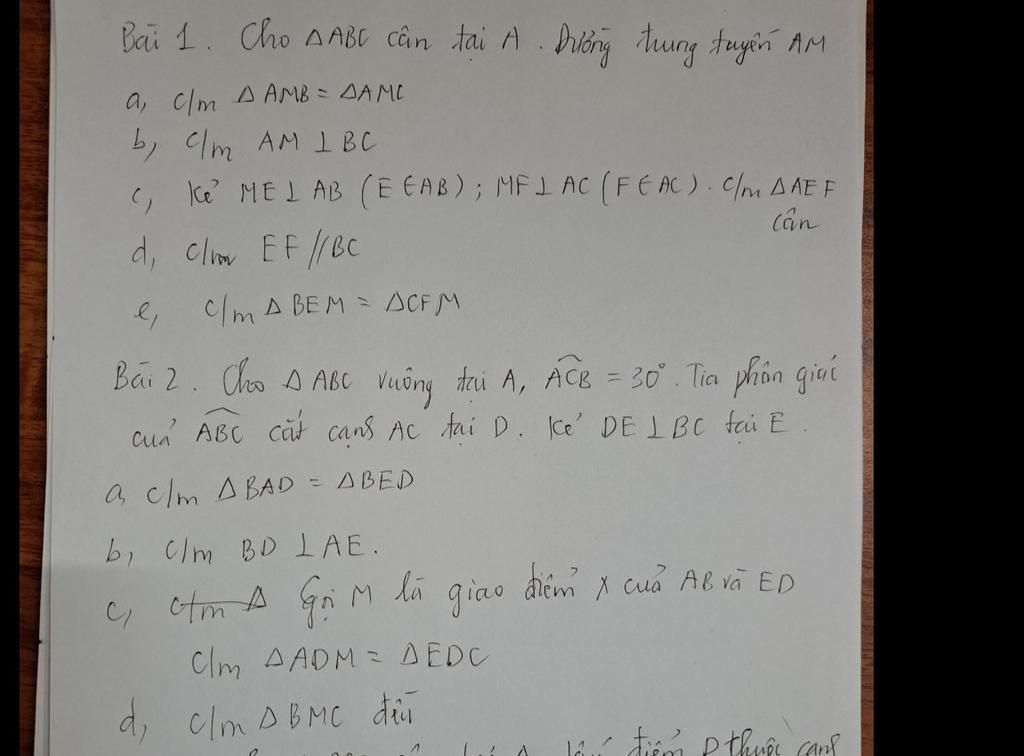 Bài 1. Cho △ABC cân tại A. Đường trung tuyến AM
a, c/m △AMB = △AMC
b, c/m AM ⊥ BC
c, Kẻ ME ⊥ AB (E ∈ AB); MF ⊥ AC (F ∈ AC). c/m △AEF
cân
d, c/m EF // BC
e, c/m △BEM = △CFM
Bài 2. Cho △ABC vuông tại A, ACB = 30°. Tia phân giác
của ABC cắt cạnh AC tại D. Kẻ DE ⊥ BC tại E.
a, c/m △BAD = △BED
b, c/m BD ⊥ AE.
c, Gọi M là giao điểm của AB và ED
c/m △ADM = △EDC
d, c/m △BMC đều
điểm D thuộc cạnh